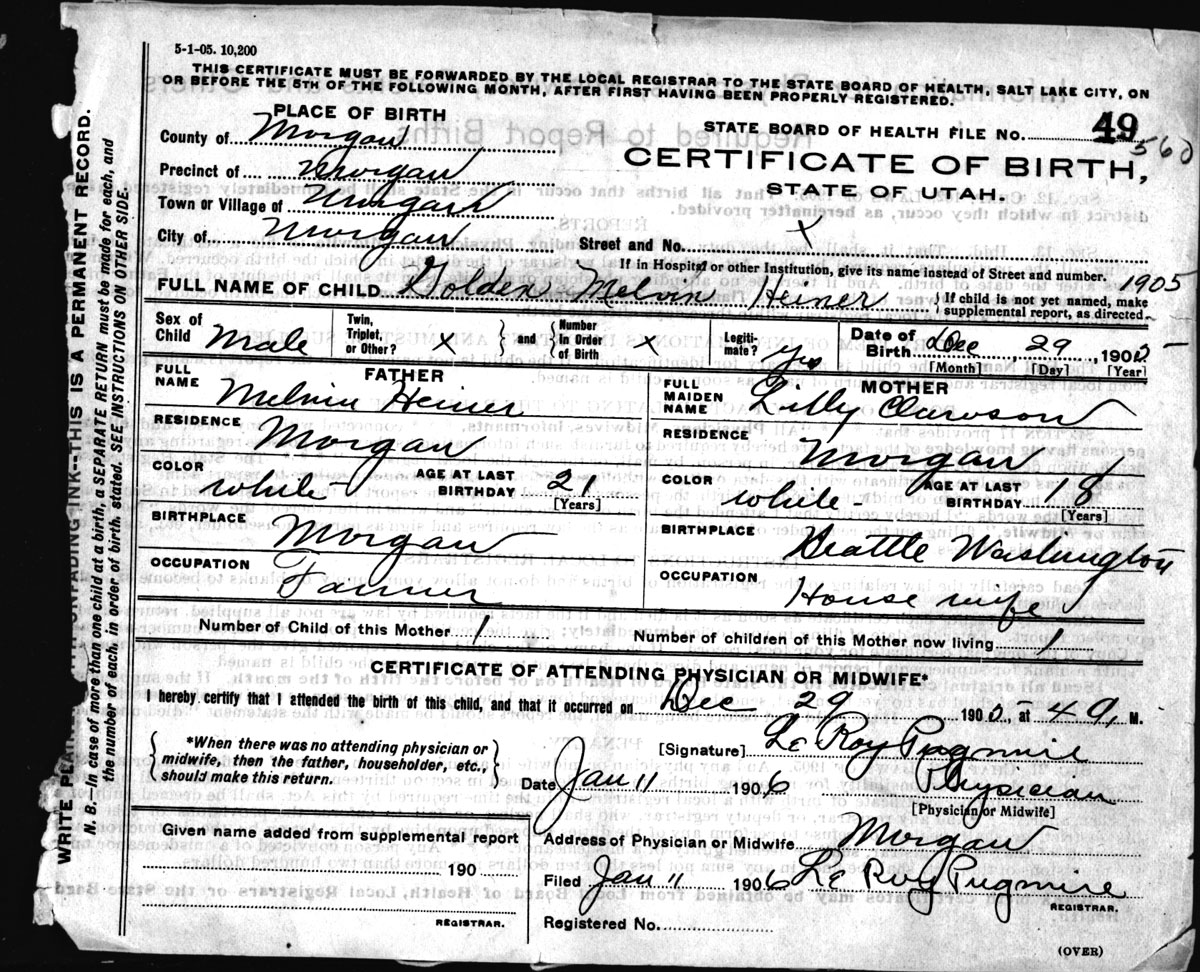 5-1-05. 10,200
THIS CERTIFICATE MUST BE FORWARDED BY THE LOCAL REGISTRAR TO THE STATE BOARD OF HEALTH, SALT LAKE CITY, ON
OR BEFORE THE 5TH OF THE FOLLOWING MONTH, AFTER FIRST HAVING BEEN PROPERLY REGISTERED.
PLACE OF BIRTH
County of Morgan
Precinct of Morgan
Town or Village of Morgan
City of Morgan
STATE BOARD OF HEALTH FILE No. 49
560
CERTIFICATE OF BIRTH,
STATE OF UTAH.
Street and No. X
If in Hospital or other Institution, give its name instead of Street and number.
1905
FULL NAME OF CHILD Golden Melvin Heiner { If child is not yet named, make
supplemental report, as directed
Sex of Child Male
Twin, Triplet, or Other? X
} and { Number in Order of Birth X
Legiti-mate? Yes
Date of Birth Dec 29, 190
[Month] [Day] [Year]
FATHER
FULL NAME Melvin Heiner
RESIDENCE Morgan
COLOR White AGE AT LAST BIRTHDAY 21
[Years]
BIRTHPLACE Morgan
OCCUPATION Farmer
MOTHER
FULL MAIDEN NAME Lilly Clawson
RESIDENCE Morgan
COLOR White AGE AT LAST BIRTHDAY 18
[Years]
BIRTHPLACE Seattle Washington
OCCUPATION House wife
Number of Child of this Mother 1
Number of children of this Mother now living 1
CERTIFICATE OF ATTENDING PHYSICIAN OR MIDWIFE*
I hereby certify that I attended the birth of this child, and that it occurred on Dec 29 190 , at 4 M.
{ *When there was no attending physician or
midwife, then the father, householder, etc.,
should make this return. }
[Signature] Le Roy Pugmire
Date Jan 11 1906 Physician
[Physician or Midwife]
Address of Physician or Midwife Morgan
Filed Jan 11 1906 Le Roy Pugmire
REGISTRAR.
Registered No.
Given name added from supplemental report
190
REGISTRAR.
(OVER)
WRITE PLAINLY WITH UNFADING INK--THIS IS A PERMANENT RECORD.
N. B.—In case of more than one child at a birth, a SEPARATE RETURN must be made for each, and
the number of each, in order of birth, stated. SEE INSTRUCTIONS ON OTHER SIDE.